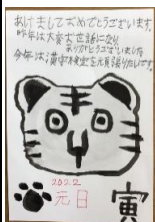 あけましておめでとうございます。
昨年は大変お世話になり
ありがとうございました
今年は漢字検定を元気張りたいです。
2022
元日
寅